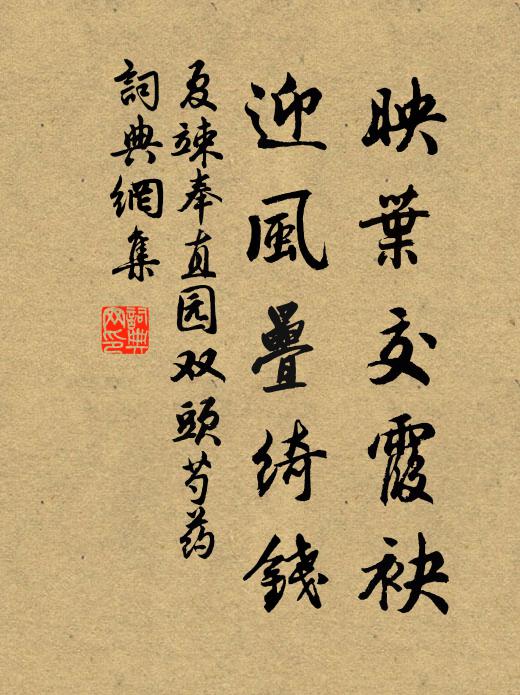 映葉交霞袂
迎風疊綺錢
夏竦奉直园双頭芍药
詞典網集
詞典网印